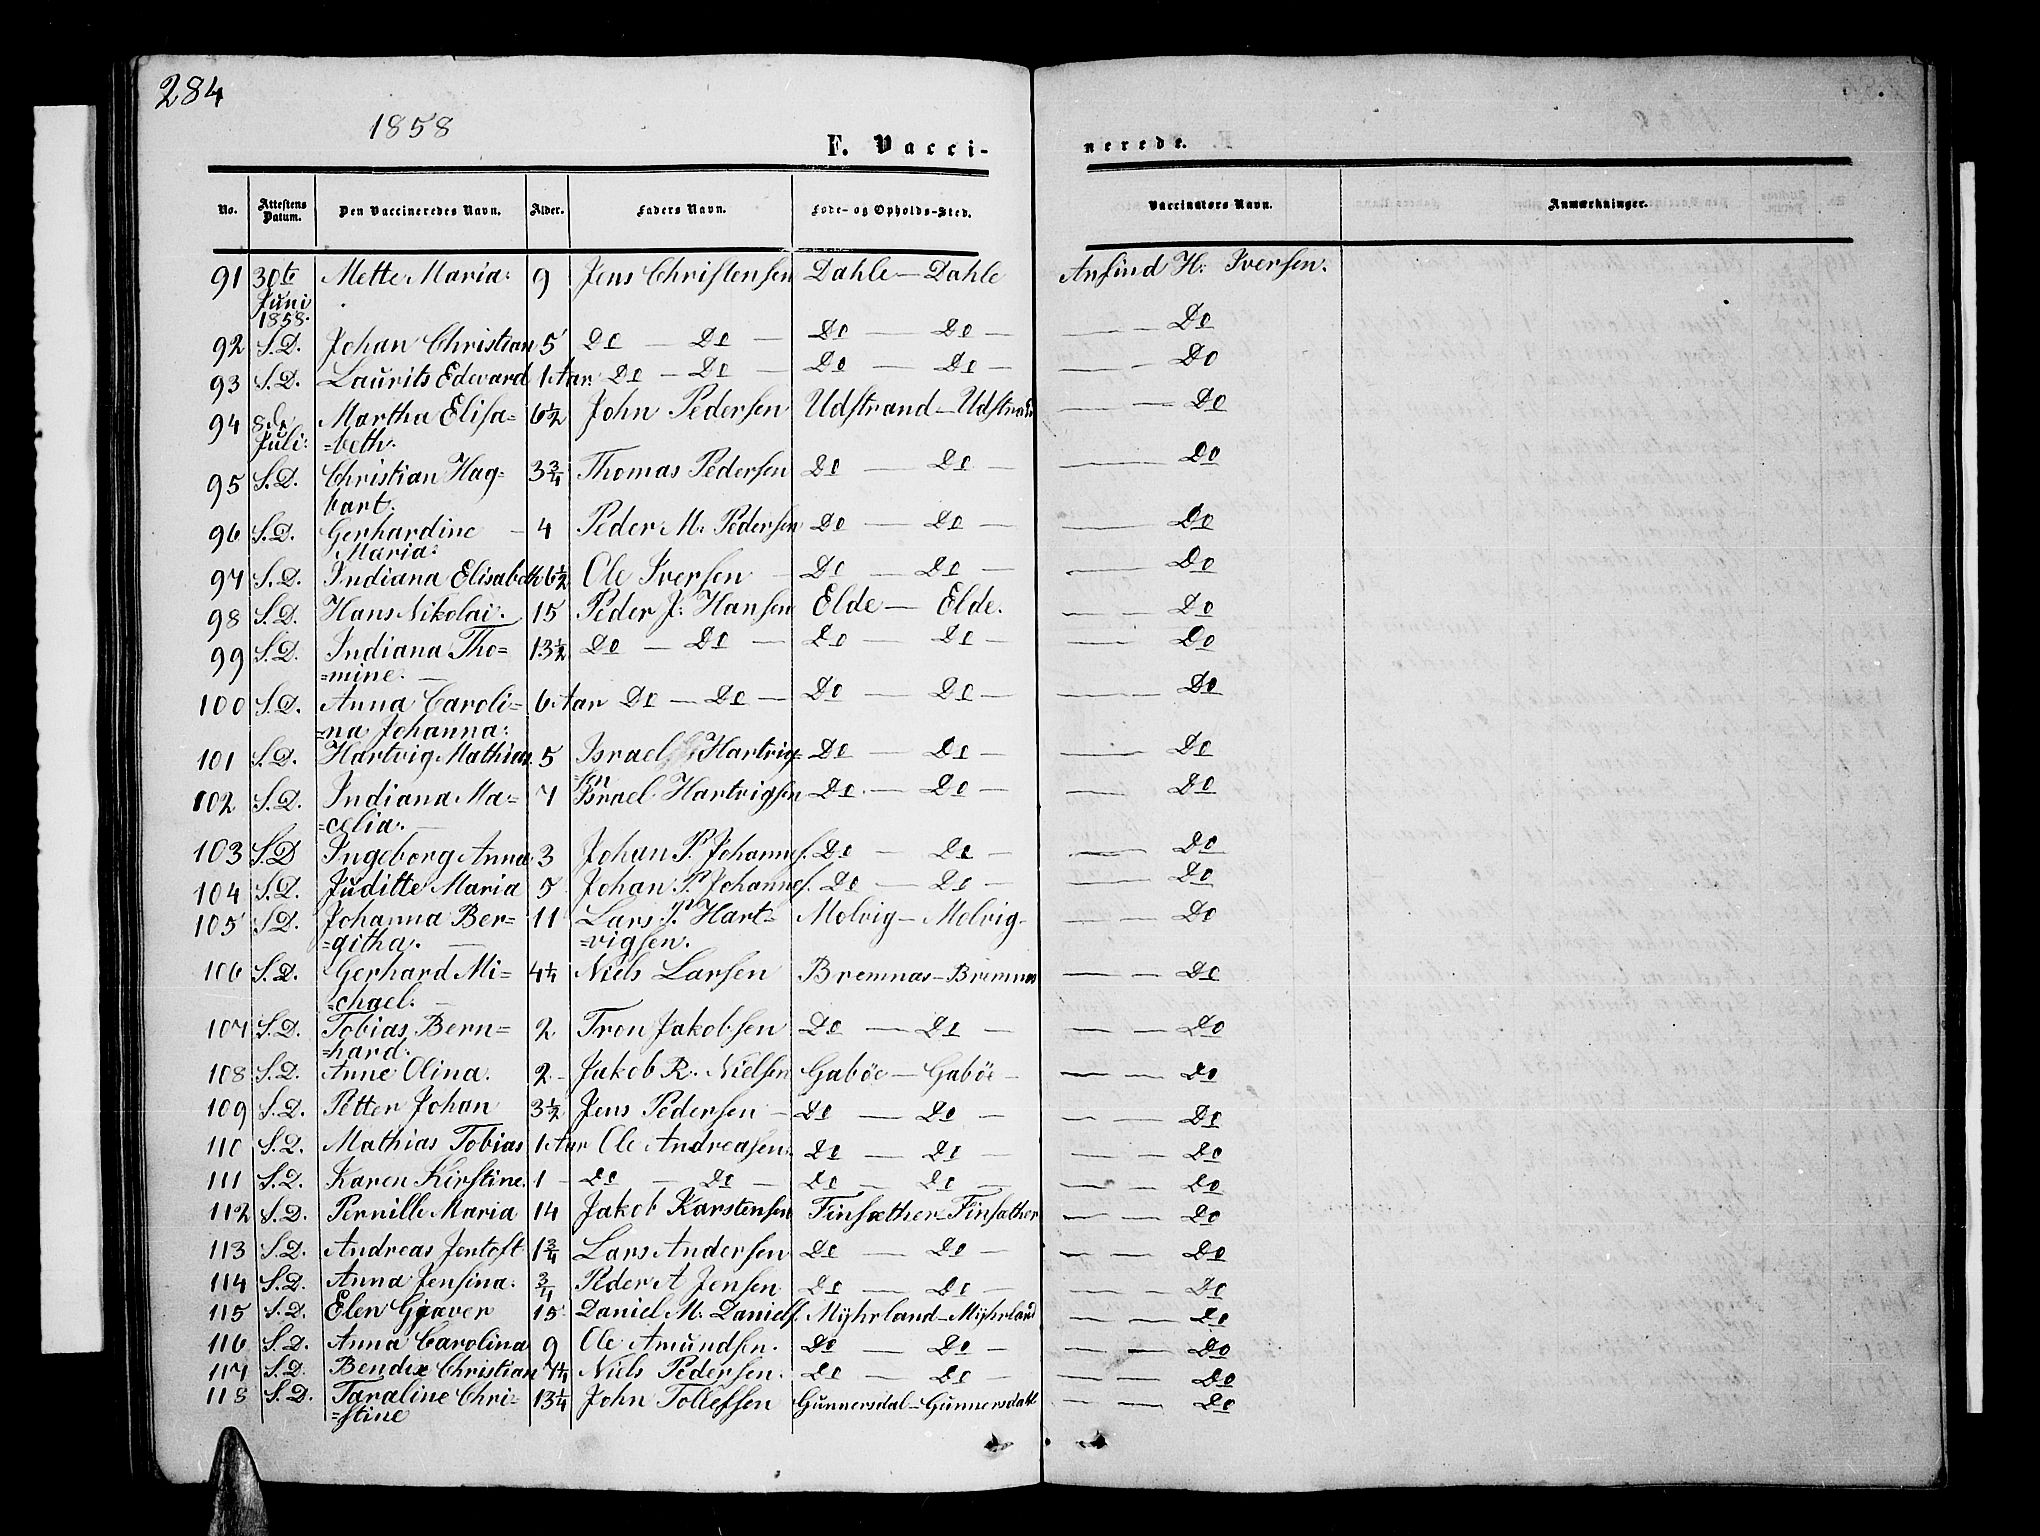 284
1858
F. Vacci-
nerede.
No. Attestens Datum. Den Vaccineredes Navn. Alder. Faders Navn. Føde- og Opholds-Sted. Vaccinators Navn. Anmærkninger.
91 30te Mette Maria: 9 Jens Christensen Dahle — Dahle Anfind H: Iversen.
Juni
1858.
92 S.D. Johan Christian 5 Do — Do — Do — Do — — Do
93 S.D. Laurits Edevard 1 Aar. Do — Do — Do — Do — — Do
94 8de Martha Elisa= 6½ John Pedersen Udstrand — Udstrand — — Do
Juli: =beth.
95 S.D. Christian Hag= 3¾ Thomas Pedersen Do — Do — — Do
bart.
96 S.D. Gerhardine — 4 Peder M. Pedersen Do — Do — — Do
Maria:
97 S.D. Indiana Elisabeth 6½ Ole Iversen — Do — Do — — Do
98 S.D. Hans Nikolai. 15 Peder J: Hansen Elde — Elde. — — Do
99 S.D. Indiana Tho= 13½ Do — Do — Do — Do — — — Do
=mine. —
100 S.D. Anna Caroli= 6 Aar Do — Do — Do — Do — — — Do
=na Johanna:
101 S.D. Hartvig Mathias 5 Israel Hartvig= Do — Do — — — Do
=sen
102 S.D. Indiana Ma= 7 Israel Hartvigsen Do. — Do — — — Do
=celia. —
103 S.D Ingeborg Anna 3 Johan P. Johannes. Do — Do — — — Do
104 S.D. Juditte Maria 5 Johan P. Johannes. Do — Do — — — Do
105 S.D. Johanna Ber= 11 Lars P. Hart= Molvig — Molvig — — Do
=githa. — =vigsen.
106 S.D. Gerhard Mi= 4¼ Niels Larsen Bremnas — Bremnas — — Do
=chael. —
107 S.D. Tobias Bern= 2 Tron Jakobsen Do — Do — — — Do
=hard.
108 S.D. Anne Olina. 2 — Jakob R. Nielsen Gaböe — Gaböe — — — Do
109 S.D. Petter Johan 3½ Jens Pedersen — Do — Do — — — Do
110 S.D. Mathias Tobias 1 Aar Ole Andreasen. Do — Do — — — Do
111 S.D. Karen Kirstine. 1 — Do — Do — Do — Do — — — Do
112 S.D. Pernille Maria 14 Jakob Karstensen Finsæther — Finsæther — — Do
113 S.D. Andreas Jentoft 1¾ Lars Andersen Do — Do — — — Do
114 S.D. Anna Jensina. ¾ Peder A Jensen Do — Do — — — Do
115 S.D. Elen Giæver 15 Daniel M. Daniels. Mÿhrland — Mÿhrland — — Do
116 S.D. Anna Carolina 9 Ole Amundsen. Do — Do — — — Do
117 S.D. Bendix Christian 7¼ Niels Pedersen. Do — Do — — — Do
118 S.D. Taraline Chri= 13¼ John Tollefsen Gunnersdal — Gunnersdahl — — Do
=stine